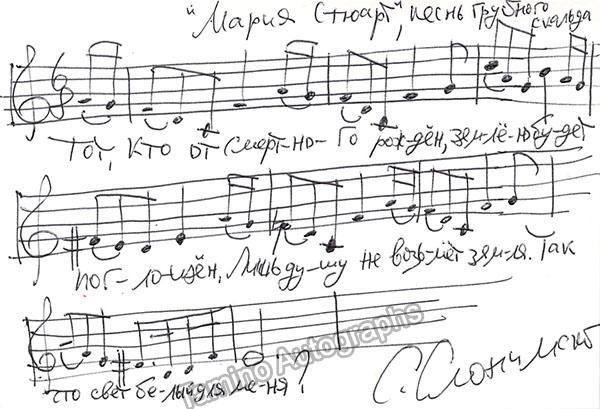 "Мария Стюарт", песнь грубного скальда
Тот, кто от смерт-но-го рож-дён, зем-лё-ю бу-дет
пог-ло-щён, Лишь ду-шу не возь-мёт зем-ля. Так
что свет бе-лый для ме-ня?
С. Слонимский
Tamino Autographs